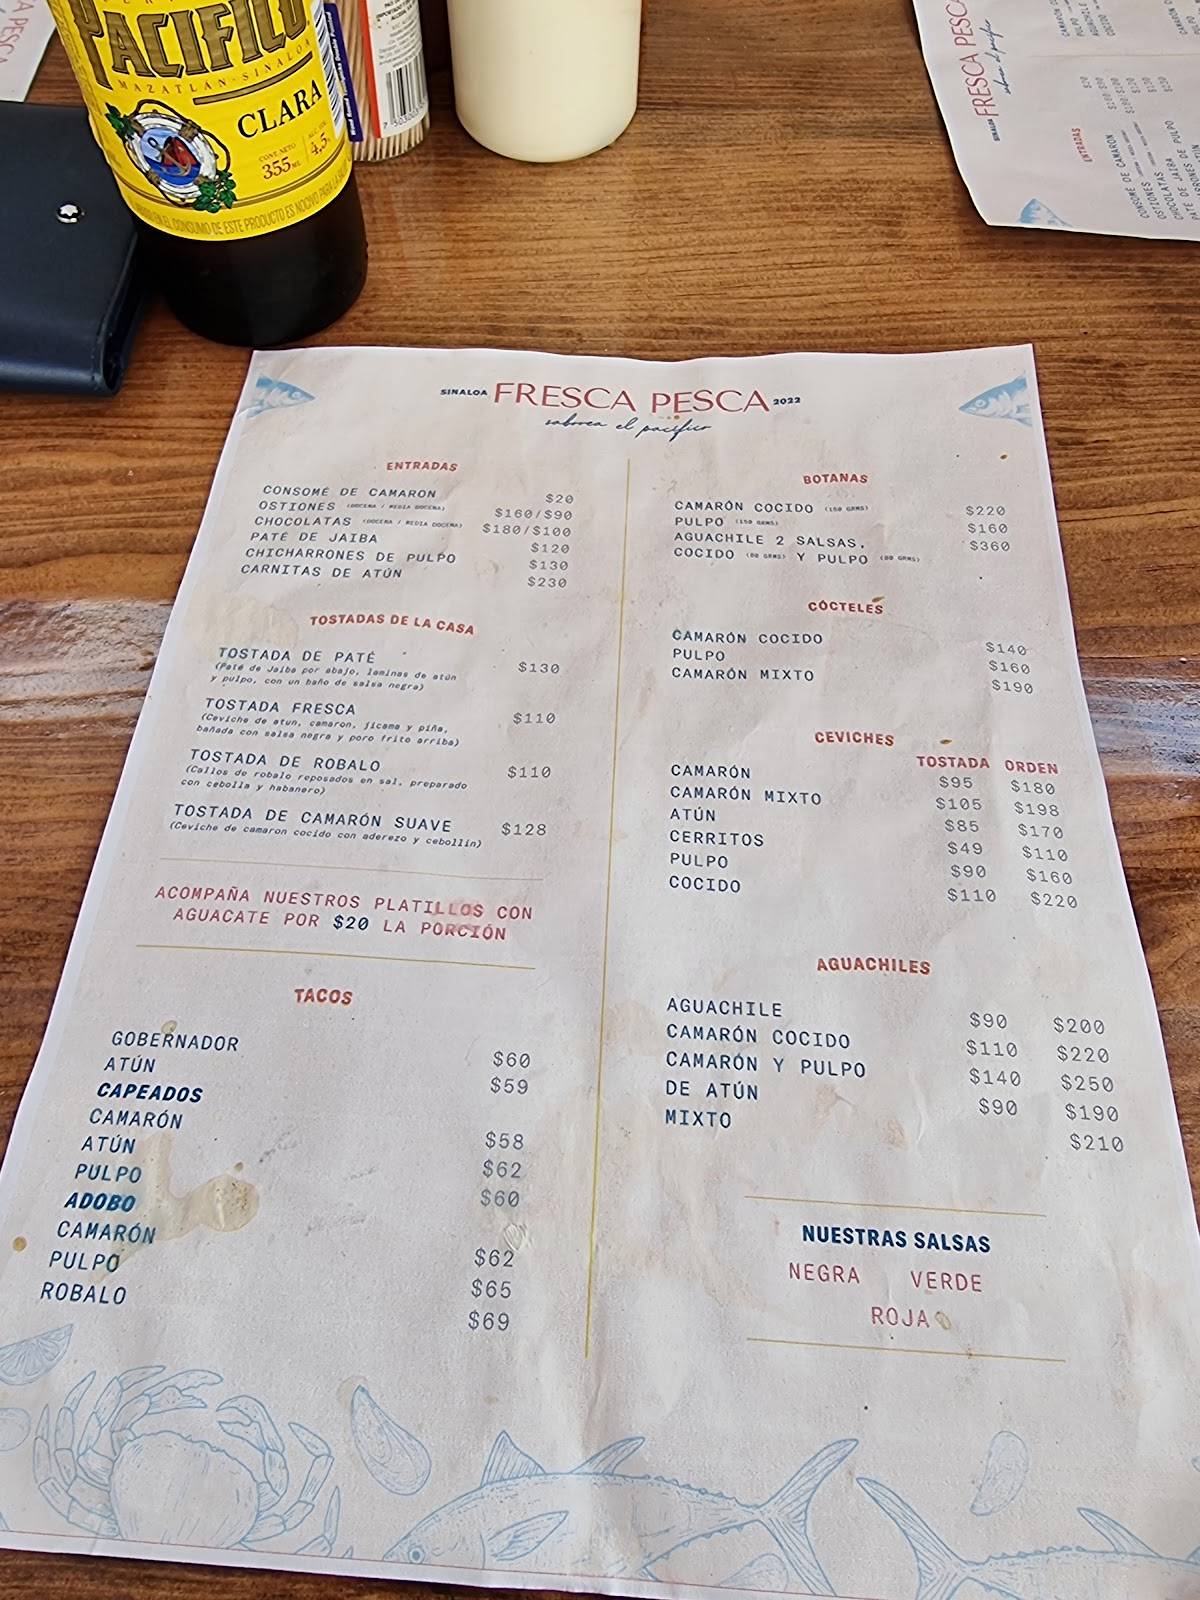 PACIFICO
MAZATLÁN-SINALOA
CLARA
CONT. NETO
355 ML
ALC. VOL.
4.5
EL CONSUMO DE ESTE PRODUCTO ES NOCIVO PARA LA
SINALOA FRESCA PESCA 2022
saborea el pacífico
ENTRADAS
CONSOMÉ DE CAMARON $20
OSTIONES (DOCENA / MEDIA DOCENA) $160/$90
CHOCOLATAS (DOCENA / MEDIA DOCENA) $180/$100
PATÉ DE JAIBA $120
CHICHARRONES DE PULPO $130
CARNITAS DE ATÚN $230
TOSTADAS DE LA CASA
TOSTADA DE PATÉ $130
(Paté de Jaiba por abajo, laminas de atún
y pulpo, con un baño de salsa negra)
TOSTADA FRESCA $110
(Ceviche de atun, camaron, jicama y piña,
bañada con salsa negra y poro frito arriba)
TOSTADA DE ROBALO $110
(Callos de robalo reposados en sal, preparado
con cebolla y habanero)
TOSTADA DE CAMARÓN SUAVE $128
(Ceviche de camaron cocido con aderezo y cebollin)
ACOMPAÑA NUESTROS PLATILLOS CON
AGUACATE POR $20 LA PORCIÓN
TACOS
GOBERNADOR $60
ATÚN $59
CAPEADOS
CAMARÓN $58
ATÚN $62
PULPO $60
ADOBO
CAMARÓN $62
PULPO $65
ROBALO $69
BOTANAS
CAMARÓN COCIDO (150 GRMS) $220
PULPO (150 GRMS) $160
AGUACHILE 2 SALSAS, $360
COCIDO (80 GRMS) Y PULPO (80 GRMS)
CÓCTELES
CAMARÓN COCIDO $140
PULPO $160
CAMARÓN MIXTO $190
CEVICHES
TOSTADA ORDEN
CAMARÓN $95 $180
CAMARÓN MIXTO $105 $198
ATÚN $85 $170
CERRITOS $49 $110
PULPO $90 $160
COCIDO $110 $220
AGUACHILES
AGUACHILE $90 $200
CAMARÓN COCIDO $110 $220
CAMARÓN Y PULPO $140 $250
DE ATÚN $90 $190
MIXTO $210
NUESTRAS SALSAS
NEGRA VERDE
ROJA
SINALOA FRESCA PESCA
saborea el pacífico
ENTRADAS
CONSOMÉ DE CAMARON $20
OSTIONES
CHOCOLATAS
CHOCOLATAS
PATÉ DE JAIBA